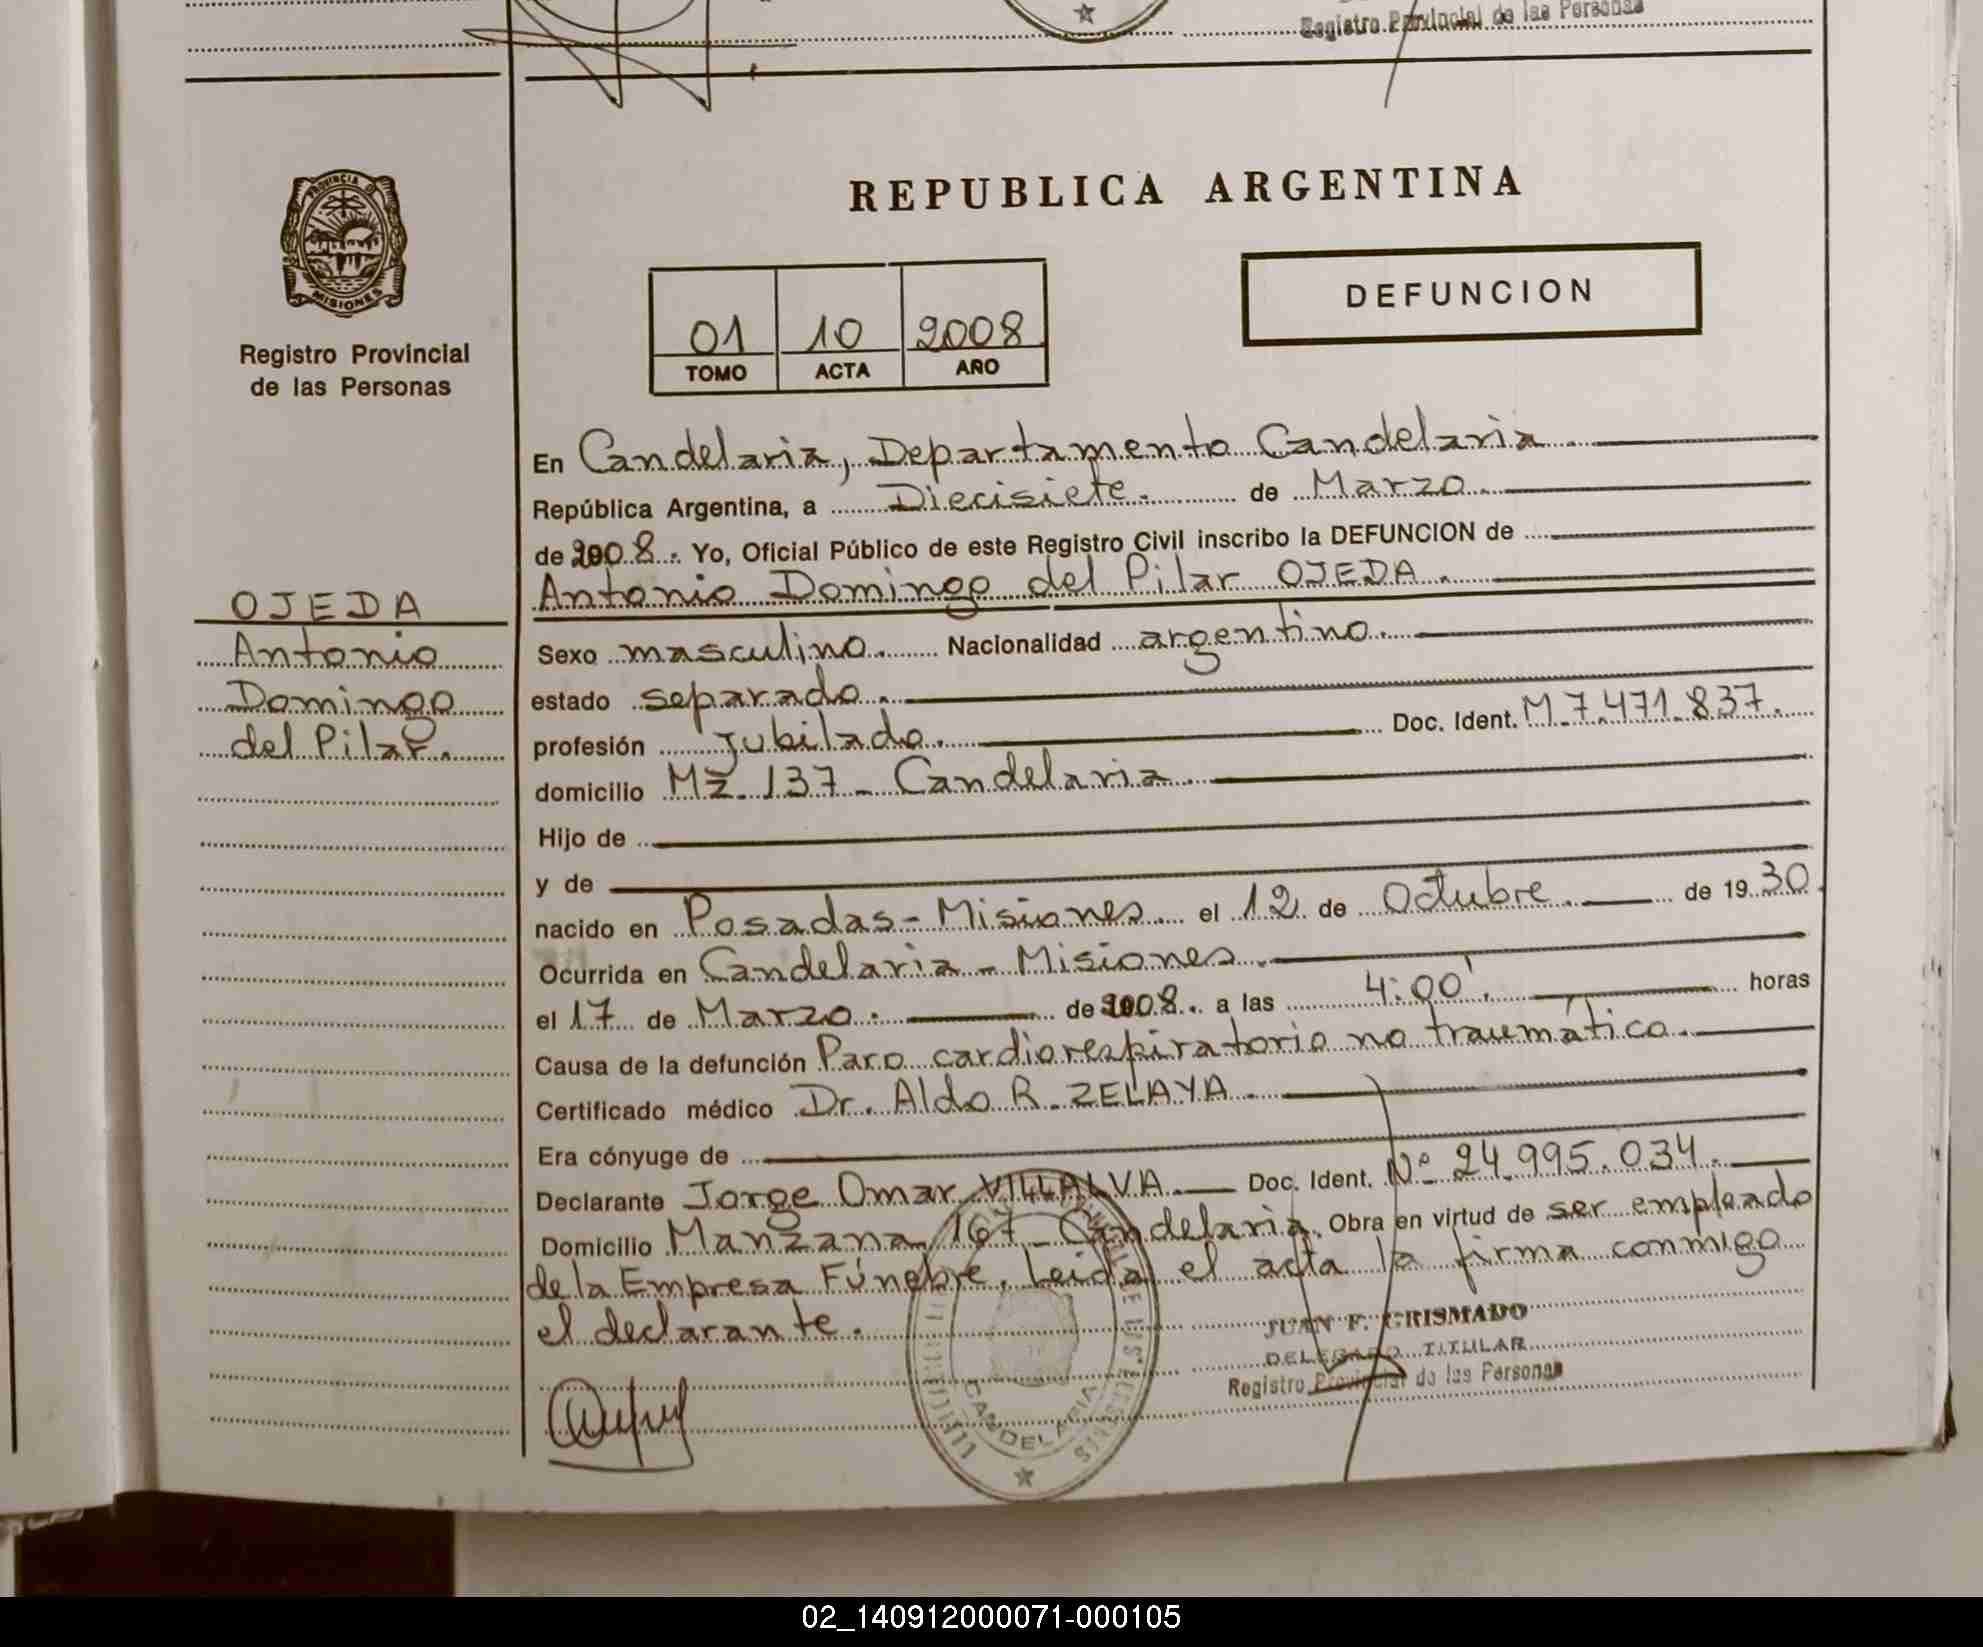 Registro Provincial de las Personas
PROVINCIA D
MISIONES
Registro Provincial
de las Personas
REPUBLICA ARGENTINA
DEFUNCION
01 10 2008
TOMO ACTA AÑO
OJEDA
Antonio
Domingo
del Pilar.
En Candelaria, Departamento Candelaria
República Argentina, a Diecisiete. de Marzo.
de 2008. Yo, Oficial Público de este Registro Civil inscribo la DEFUNCION de
Antonio Domingo del Pilar OJEDA.
Sexo masculino. Nacionalidad argentino.
estado separado.
profesión jubilado. Doc. Ident. M 7.471.837.
domicilio Mz. 137 - Candelaria
Hijo de
y de
nacido en Posadas - Misiones el 12 de Octubre. de 1930.
Ocurrida en Candelaria - Misiones.
el 17 de Marzo. de 2008. a las 4:00'. horas
Causa de la defunción Paro cardiorespiratorio no traumático.
Certificado médico Dr. Aldo R. ZELAYA
Era cónyuge de
Declarante Jorge Omar VILLALVA. Doc. Ident. Nº 24.995.034.
Domicilio Manzana 167 - Candelaria. Obra en virtud de ser empleado
de la Empresa Fúnebre. Leida el acta la firma conmigo
el declarante.
JUAN F. CRISMADO
DELEGADO TITULAR
Registro Provincial de las Personas
CANDELARIA
02_140912000071-000105